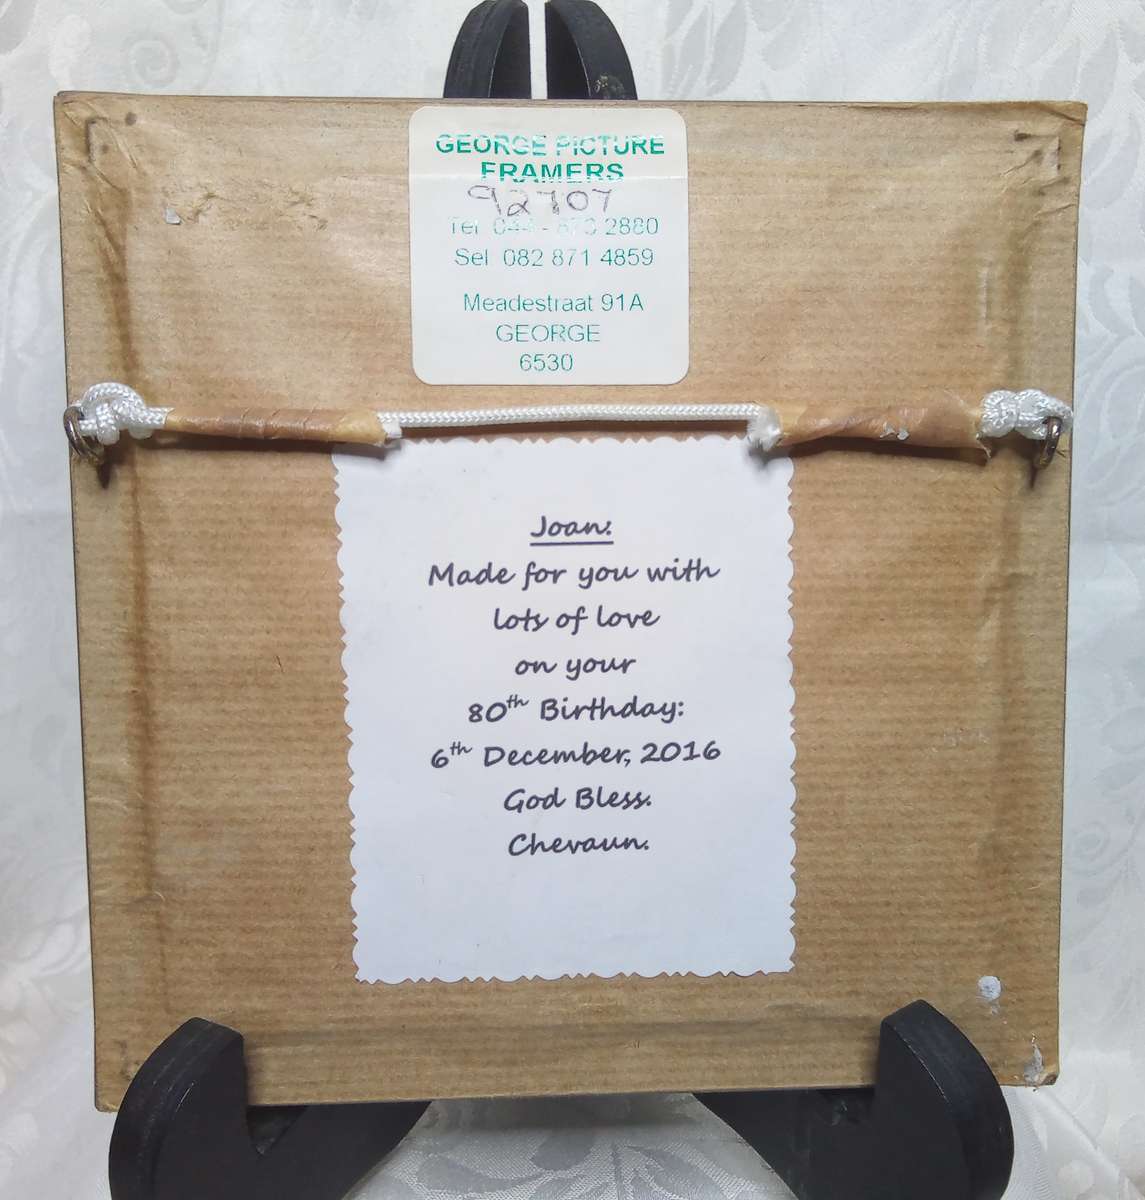 GEORGE PICTURE
FRAMERS
92707
Tel 044 - 873 2880
Sel 082 871 4859
Meadestraat 91A
GEORGE
6530
Joan:
Made for you with
lots of love
on your
80th Birthday:
6th December, 2016
God Bless.
Chevaun.